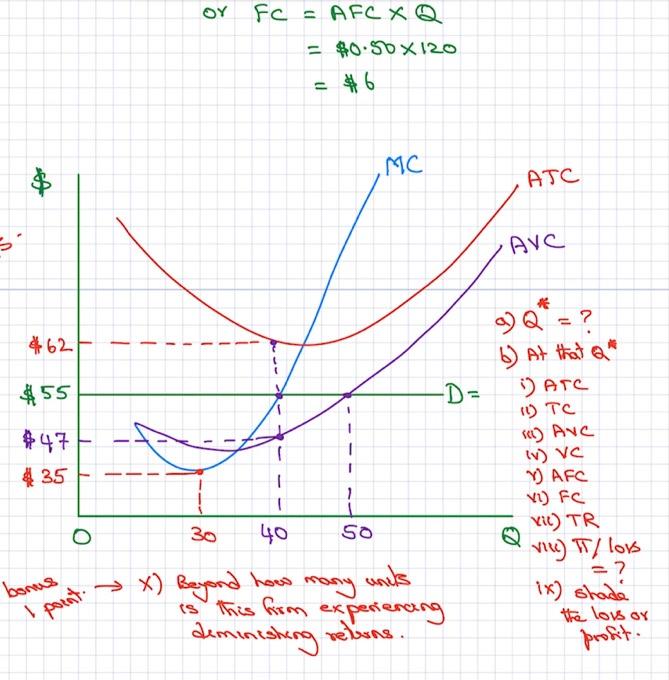 or FC = AFC X Q
= $0.50 X 120
= $6
$
MC
ATC
AVC
s.
$62
$55
D=
$47
$35
O
30
40
50
Q
a) Q* = ?
b) At that Q*
i) ATC
ii) TC
iii) AVC
iv) VC
v) AFC
vi) FC
vii) TR
viii) π/loss
= ?
ix) shade
the loss or
profit.
bonus
1 point. → x) Beyond how many units
is this firm experiencing
diminishing returns.